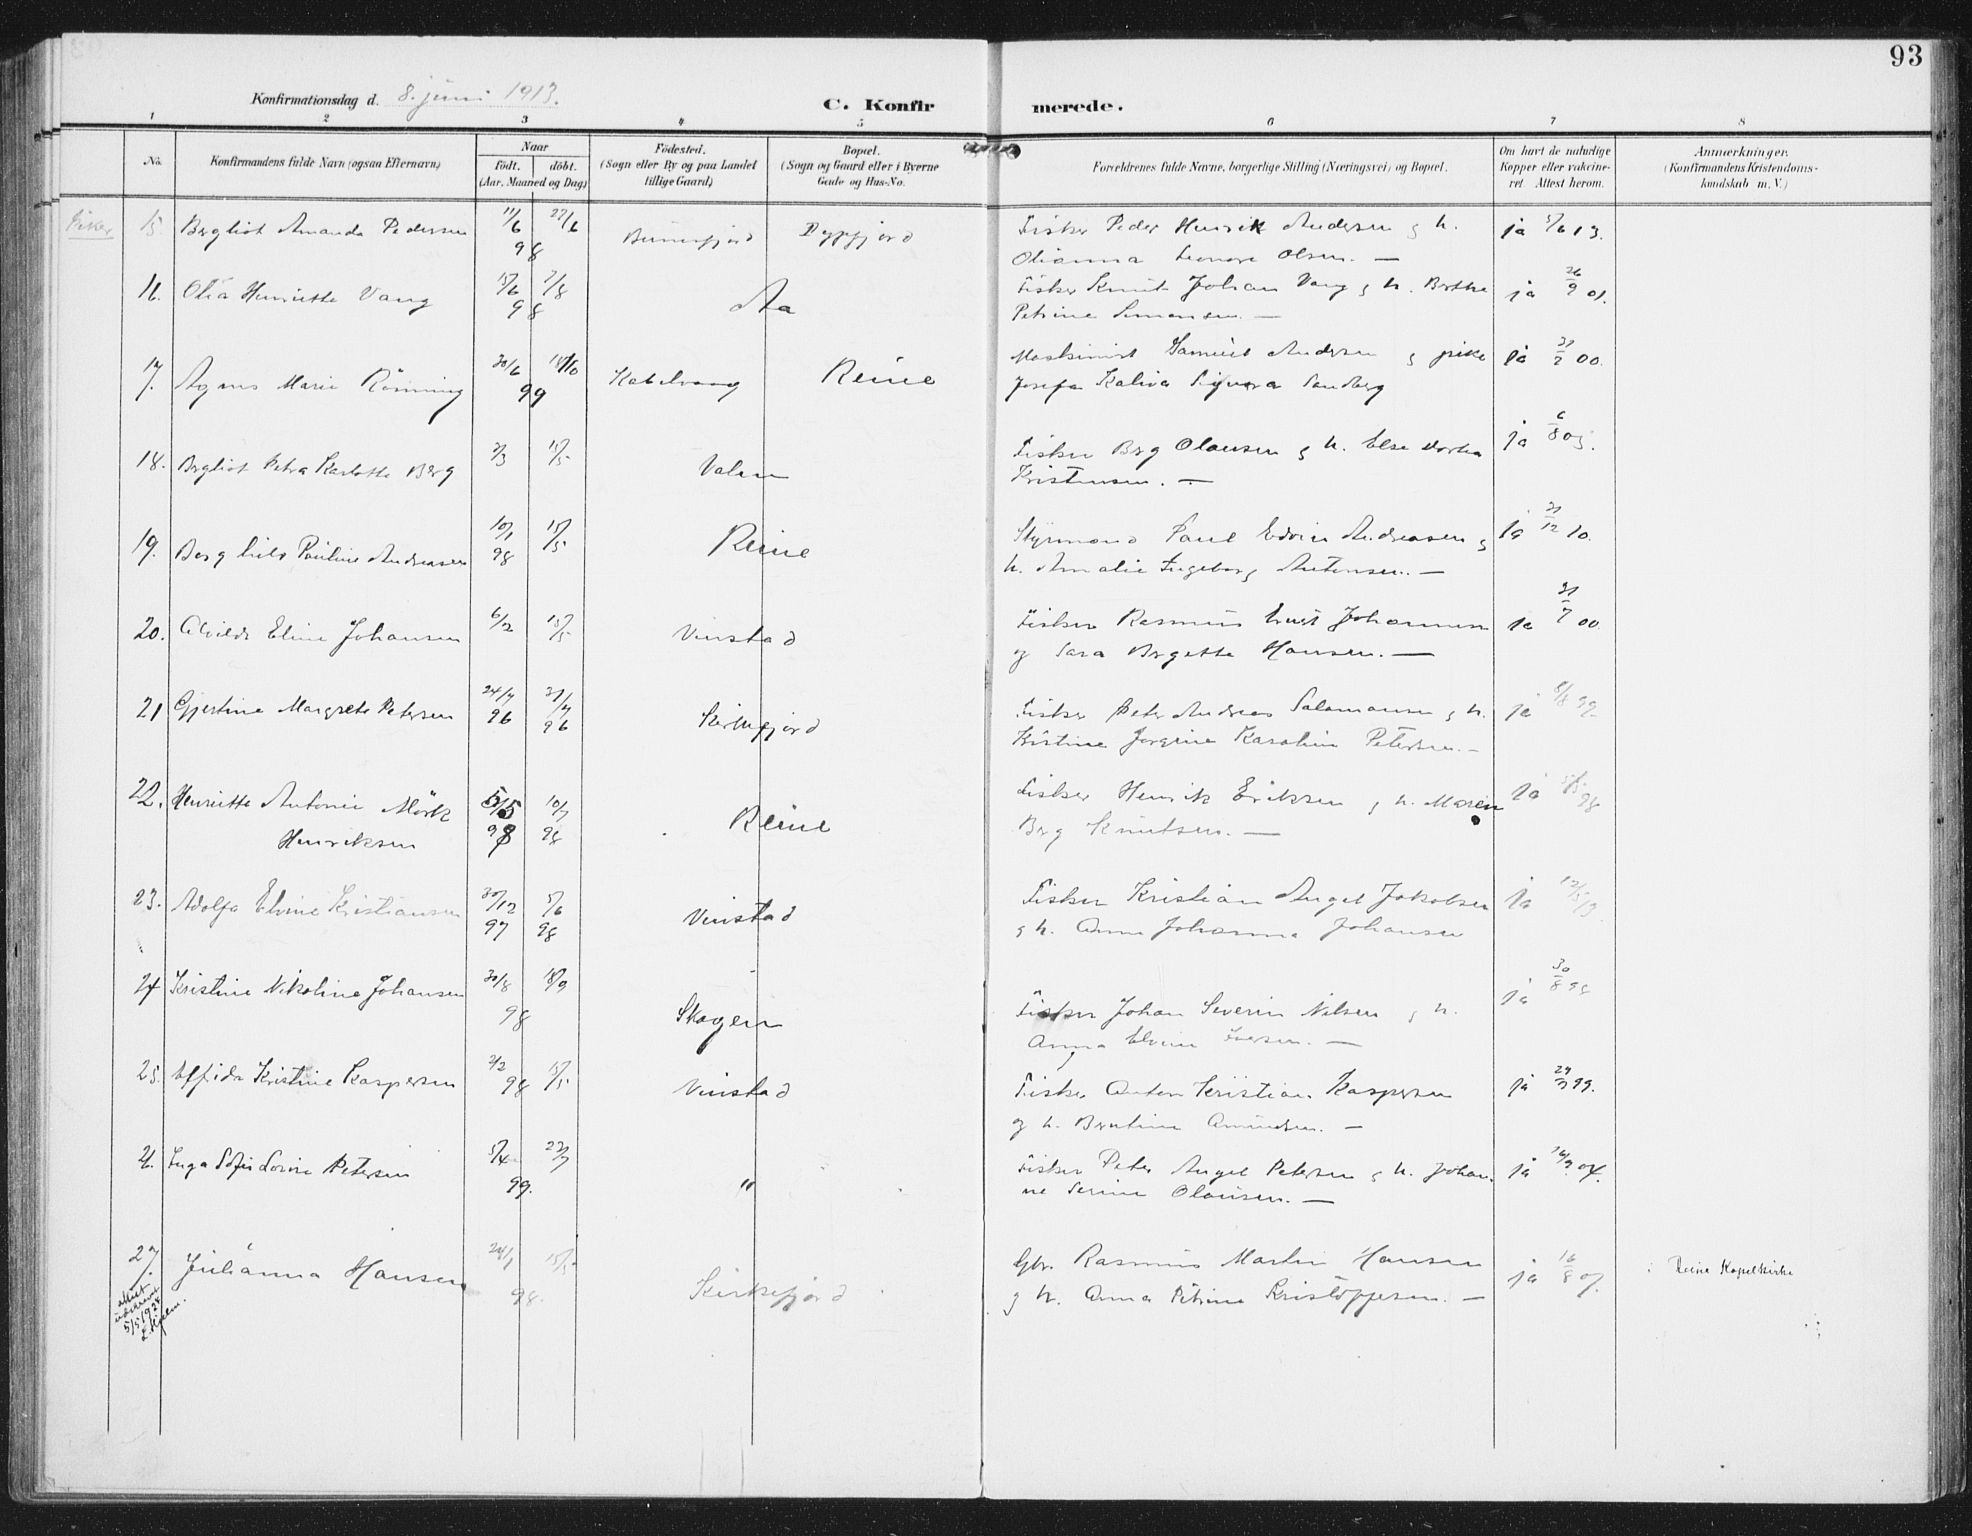 93
Konfirmationsdag d. 8. juni 1913.
C. Konfirmerede.
1 2 3 4 5 6 7 8
No.
Konfirmandens fulde Navn (ogsaa Efternavn)
Naar
födt. döbt.
(Aar, Maaned og Dag)
Födested.
(Sogn eller By og paa Landet
tillige Gaard)
Bopæl.
(Sogn og Gaard eller i Byerne
Gade og Hus-No.
Forældrenes fulde Navne, borgerlige Stilling (Næringsvei) og Bopæl.
Om havt de naturlige
Kopper eller vakcine-
ret. Attest herom.
Anmærkninger.
(Konfirmandens Kristendoms-
kundskab m. V.)
Piker 15. Bergliot Amanda Pedersen 11/6 27/6 98 Bunesfjord Dypfjord Fisker Peder Henrik Andersen og h. ja 5/6 13.
Olianna Leonore Olsen. —
16. Otia Henriette Vang 15/6 7/8 98 Aa Fisker Knut Johan Vang og h. Berthe ja 26/9 01.
Petrine Simonsen. —
17. Agnes Marie Rönning 30/6 18/10 99 Kabelvaag Reine Maskinist Samuel Andersen og pike ja 31/2 00.
Josefa Kaliva Signora Sandberg
18. Bergliot Petra Karlotte Berg 3/3 15/5 Valen Fisker Berg Olausen og h. Else Dorthea ja 6/8 03.
Kristensen. —
19. Borghild Pauline Andreasen 10/1 98 15/5 Reine Styrmand Paul Edvin Andreasen og ja 31/12 10.
h. Amalie Ingeborg Antonsen. —
20. Alvilde Eline Johansen 6/2 15/5 Vinstad Fisker Rasmus Ernst Johannesen ja 31/7 00.
og Sara Bergette Hansen. —
21 Gjertine Margrete Petersen 24/7 96 31/7 96 Kirkefjord Fisker Peter Andreas Salamonsen og h. ja 8/8 99.
Kristine Jorgine Karoline Petersen. —
22. Henriette Antonie Mörk 5/5 98 10/7 98 Reine Fisker Henrik Eriksen og h. Maren ja
Henriksen Berg Knutsen. —
23. Adolfa Elvine Kristiansen 30/12 97 5/6 98 Vinstad Fisker Kristian Angel Jakobsen ja 12/5 13.
og h. Anna Johanna Johansen
24 Kristine Nikoline Johansen 30/8 18/9 98 Skogen Fisker Johan Severin Nilsen og h. ja 30/8 98
Anna Elvine Iversen. —
25. Alfida Kristine Kaspersen 2/2 98 15/5 Vinstad Fisker Anton Kristian Kaspersen ja 29/9 99.
og h. Berntine Amundsen. —
26. Inga Sofie Lovise Petersen 5/4 22/7 99. " Fisker Peter Angel Petersen og h. Johan- ja 16/9 04.
ne Serine Olausen. —
27. Julianna Hansen 24/1 15/5 98. Kirkefjord Gbr. Rasmus Martin Hansen ja 16/8 07. i Reine Kapelkirke
og h. Anna Petrine Kristoffersen. —
attest
utskrevet
5/5 1928
L. Hjelm.